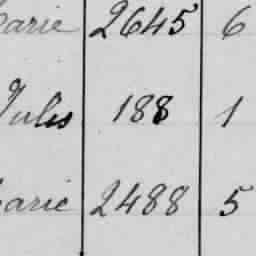 arie 2645 6
Jules 188 1
arie 2488 5